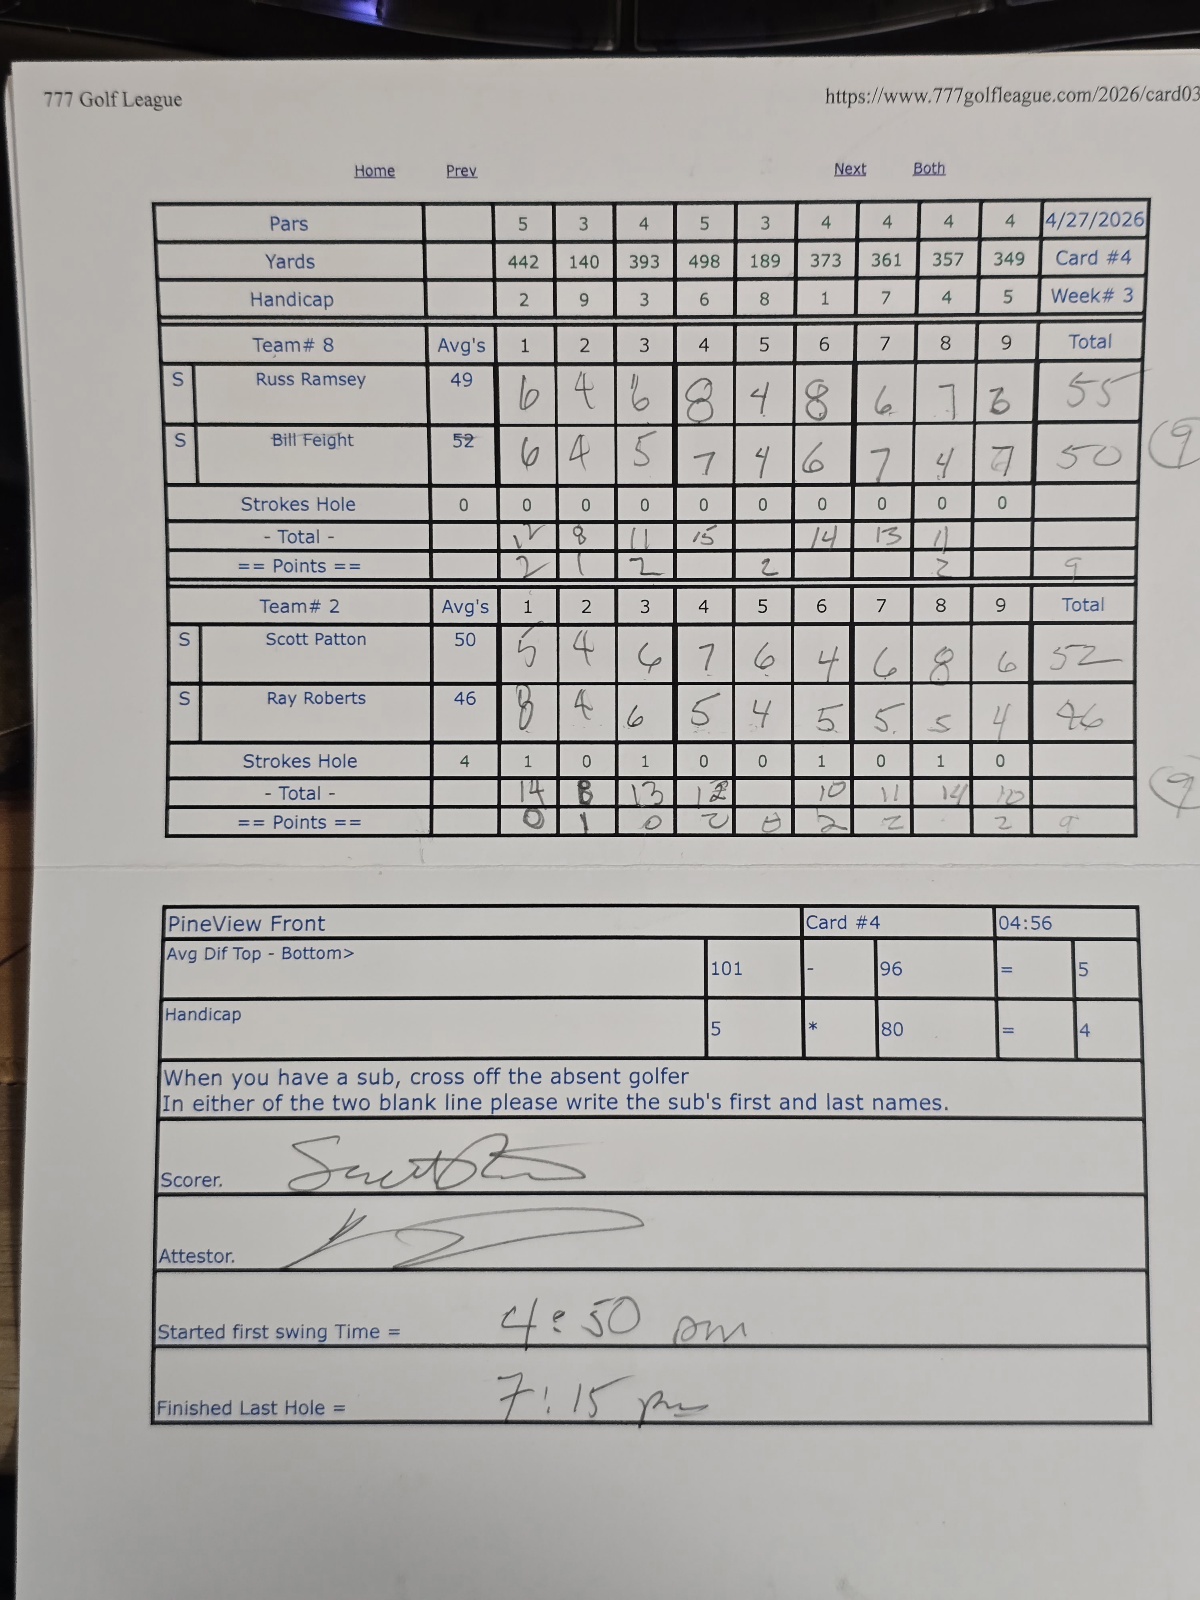 777 Golf League https://www.777golfleague.com/2026/card03
Home Prev Next Both
Pars 5 3 4 5 3 4 4 4 4 4/27/2026
Yards 442 140 393 498 189 373 361 357 349 Card #4
Handicap 2 9 3 6 8 1 7 4 5 Week# 3
Team# 8 Avg's 1 2 3 4 5 6 7 8 9 Total
S Russ Ramsey 49 6 4 6 8 4 8 6 7 6 55
S Bill Feight 52 6 4 5 7 4 6 7 4 7 50 9
Strokes Hole 0 0 0 0 0 0 0 0 0 0
- Total - 12 8 11 15 14 13 11
== Points == 2 1 2 2 2 9
Team# 2 Avg's 1 2 3 4 5 6 7 8 9 Total
S Scott Patton 50 5 4 6 7 6 4 6 8 6 52
S Ray Roberts 46 8 4 6 5 4 5 5 5 4 46
Strokes Hole 4 1 0 1 0 0 1 0 1 0
- Total - 14 8 13 12 10 11 14 10 9
== Points == 0 1 0 2 0 2 2 2 9
PineView Front Card #4 04:56
Avg Dif Top - Bottom> 101 - 96 = 5
Handicap 5 * 80 = 4
When you have a sub, cross off the absent golfer
In either of the two blank line please write the sub's first and last names.
Scorer.
Attestor.
Started first swing Time = 4:50 pm
Finished Last Hole = 7:15 pm